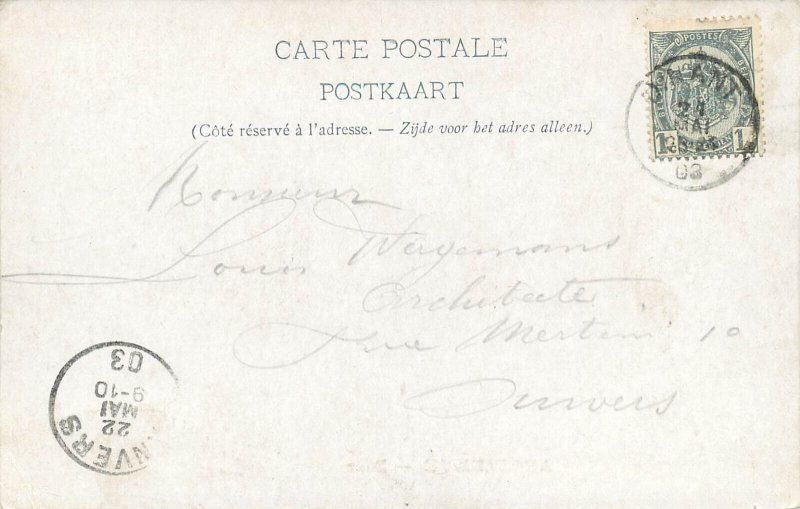 CARTE POSTALE
POSTKAART
(Côté réservé à l'adresse. — Zijde voor het adres alleen.)
POSTES
1 1
MAI
03
Monsieur
Louis Wagemans
Architecte
Rue 10
Anvers
ANVERS
22
MAI
9-10
03